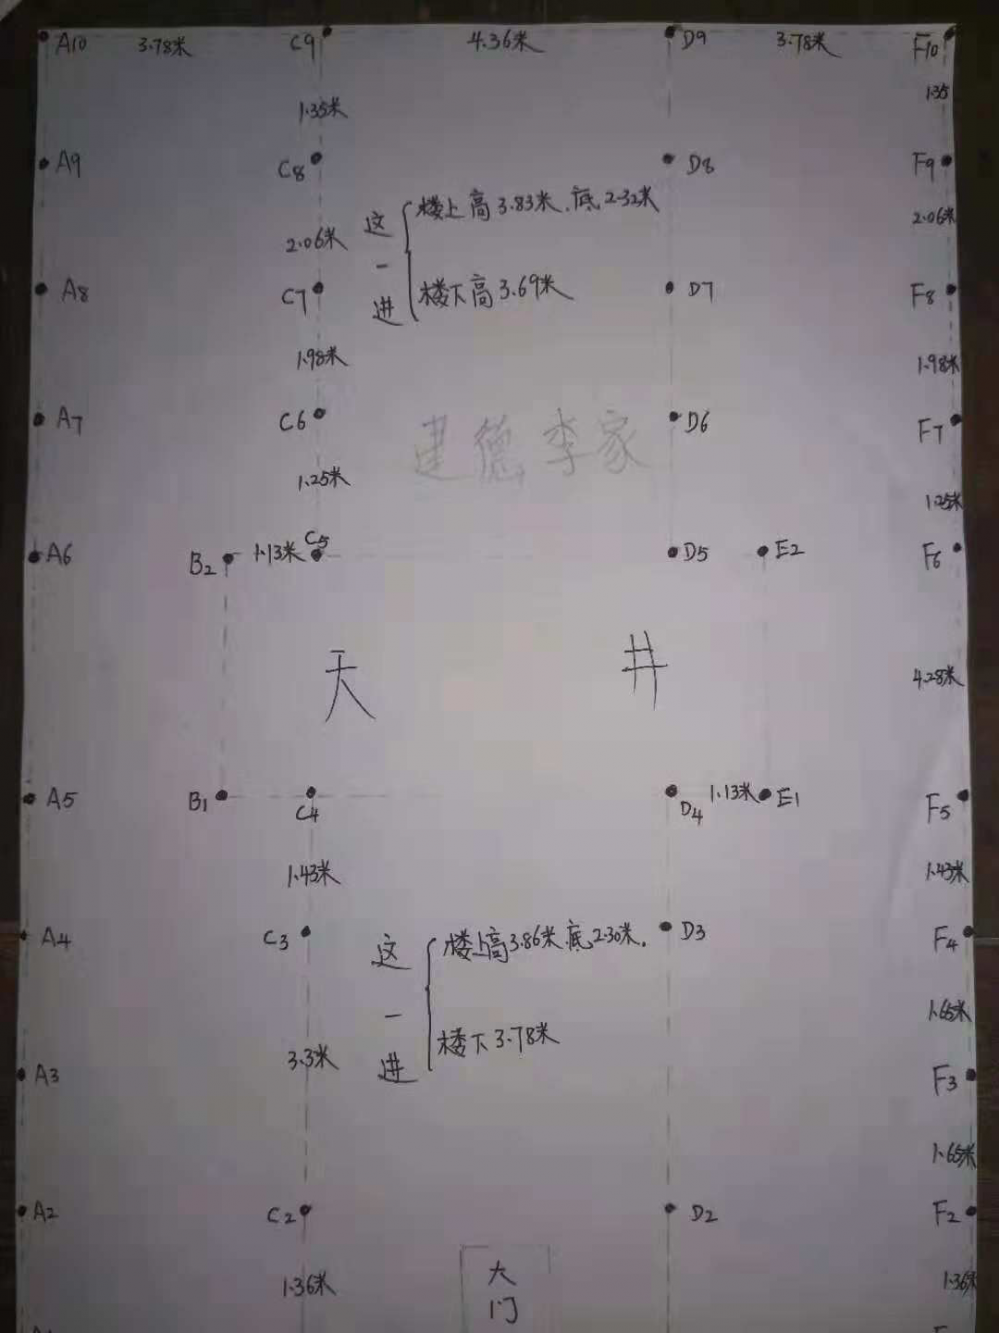 A10 3.78米 C9 4.36米 D9 3.78米 F10
1.35米 1.35
A9 C8 D8 F9
楼上高3.83米.底2.32米
这一进
2.06米 2.06米
楼下高3.69米
A8 C7 D7 F8
1.98米 1.98米
A7 C6 D6 F7
建德李家
1.25米 1.25米
A6 B2 1.13米 C5 D5 E2 F6
天井 4.28米
A5 B1 C4 D4 1.13米 E1 F5
1.43米 1.43米
A4 C3 D3 F4
楼上高3.86米.底2.30米.
这一进
1.65米
楼下3.78米
3.3米
A3 F3
1.65米
A2 C2 D2 F2
大门
1.36米 1.36米